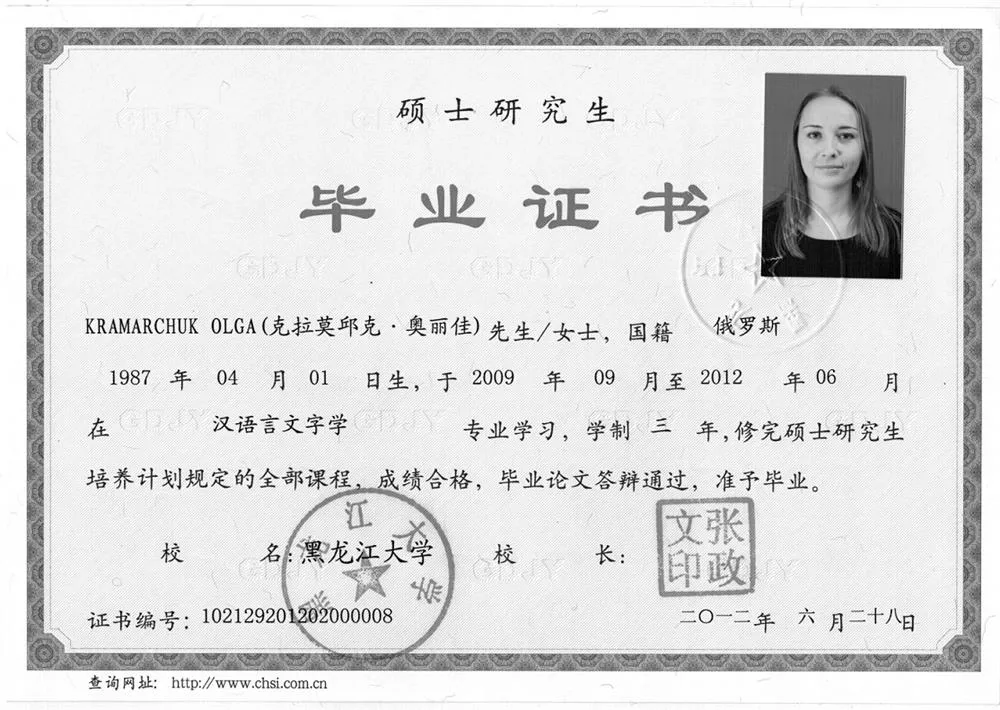 硕士研究生
毕业证书
KRAMARCHUK OLGA(克拉莫邱克·奥丽佳)先生/女士，国籍 俄罗斯
1987 年 04 月 01 日生，于 2009 年 09 月至 2012 年 06 月
在 汉语言文字学 专业学习，学制 三 年,修完硕士研究生
培养计划规定的全部课程，成绩合格，毕业论文答辩通过，准予毕业。
校 名: 黑龙江大学 校 长:
黑龙江大学
张政文印
证书编号: 102129201202000008 二〇一二年 六 月二十八日
查询网址: http://www.chsi.com.cn